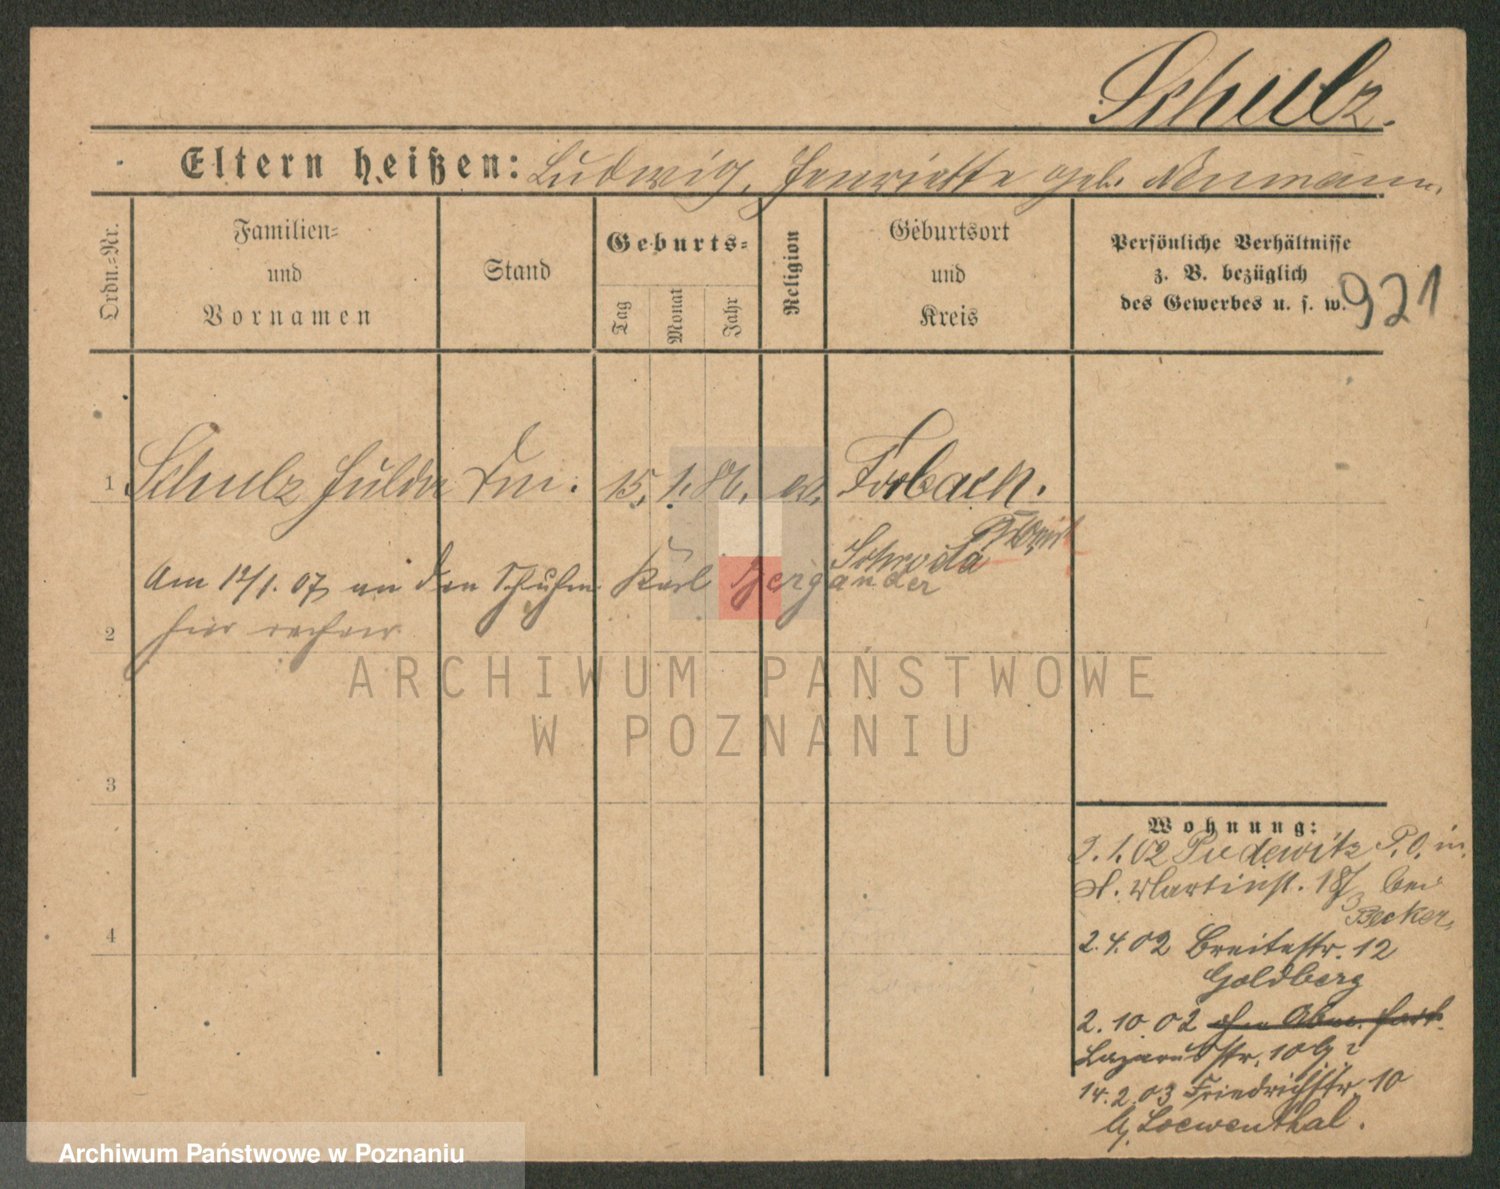 Schulz.
Eltern heißen: Ludwig, Henriette geb. Neumann.
Ordn.-Nr.
Familien-
und
Vornamen
Stand
Geburts-
Tag
Monat
Jahr
Religion
Geburtsort
und
Kreis
Persönliche Verhältnisse
z. B. bezüglich
des Gewerbes u. s. w.
921
1 Schulz Hulda 15. 1. 86. ev. Forbach.
Schroda
Am 12/1. 07 an den Schuhm. Karl Bergander
2 hier
ARCHIWUM PAŃSTWOWE
W POZNANIU
3
4
Wohnung:
2. 1. 02 Pudewitz P. O. in
St. Martinst. 18 bei
Becker,
2. 4. 02 Breitestr. 12
Goldberg
2. 10 02
Lazarusstr. 10
14. 2. 03 Friedrichstr. 10
Loewenthal.
Archiwum Państwowe w Poznaniu